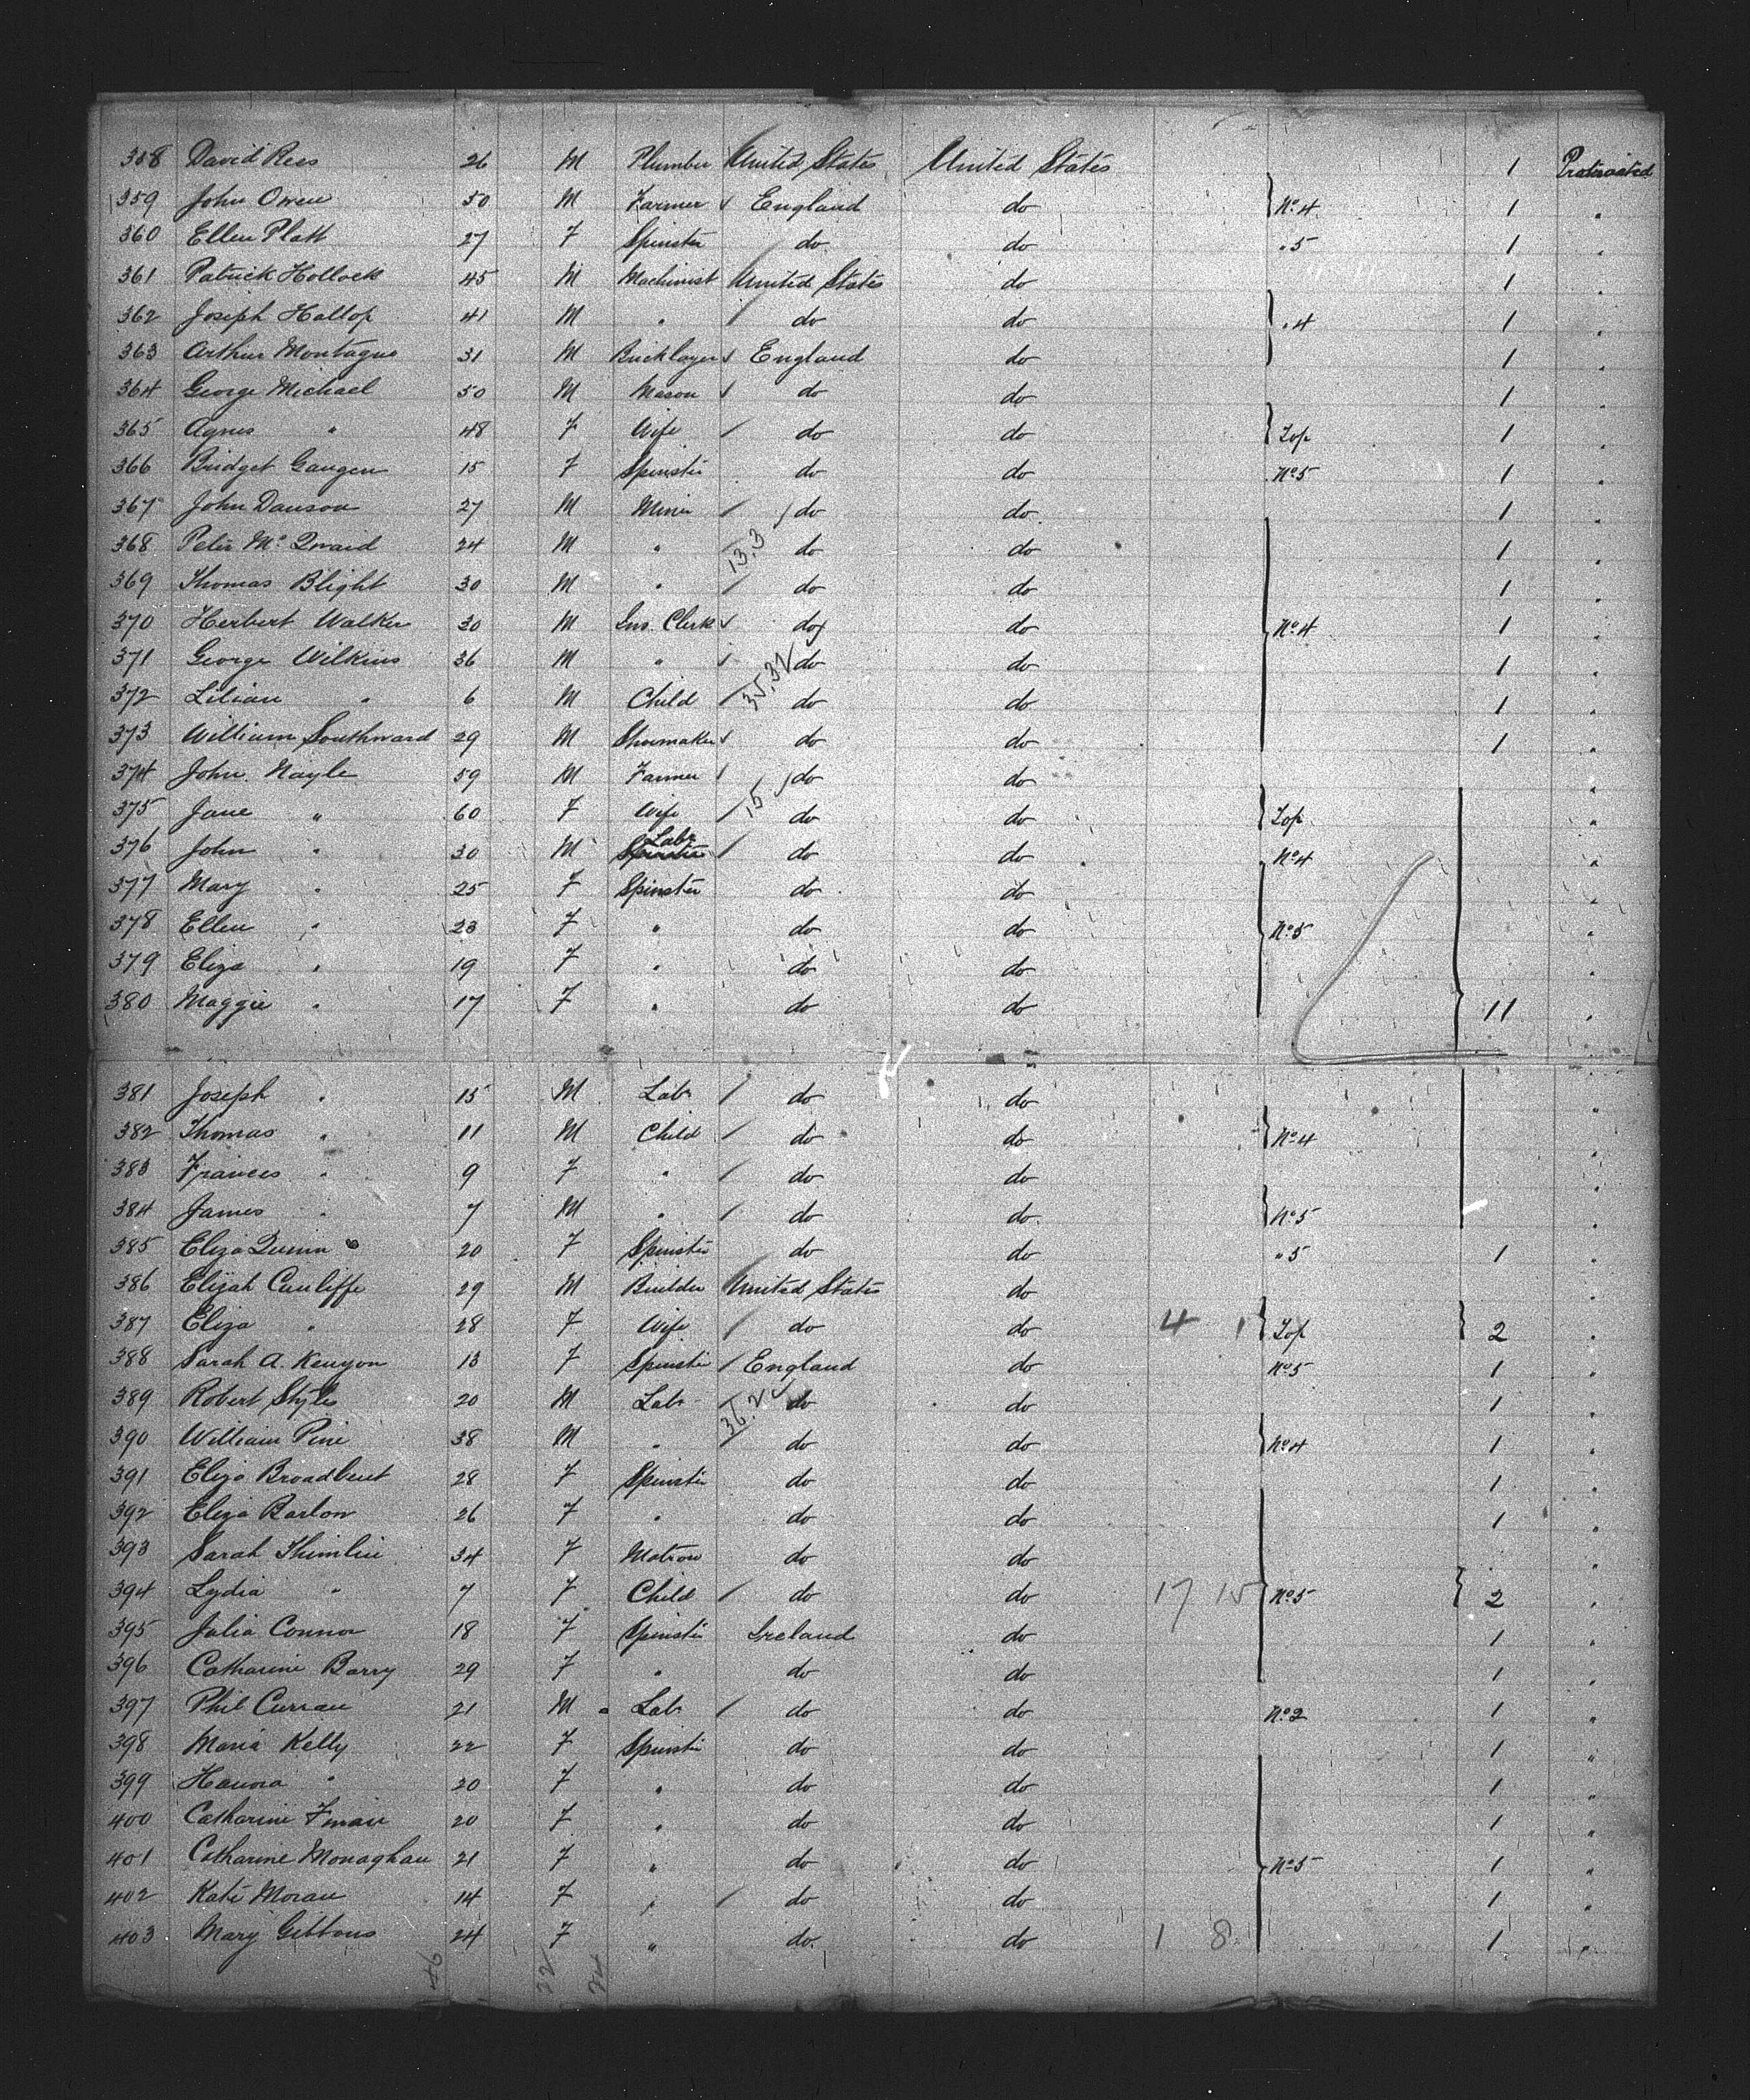 358 David Rees 26 M Plumber United States United States 1 Protracted
359 John Owen 50 M Farmer England do No. 4 1 "
360 Ellen Platt 27 F Spinster do do " 5 1 "
361 Patrick Hollock 45 M Machinist United States do 1 "
362 Joseph Hallop 41 M " do do " 4 1 "
363 Arthur Montague 31 M Bricklayer England do 1 "
364 George Michael 50 M Mason do do 1 "
365 Agnes " 48 F Wife do do Top 1 "
366 Bridget Gaugen 15 F Spinster do do No. 5 1 "
367 John Dawson 27 M Miner do do 1 "
368 Peter Mc Quaid 24 M " 13.3 do do 1 "
369 Thomas Blight 30 M " do do 1 "
370 Herbert Walker 30 M Ins. Clerk do do No. 4 1 "
371 George Wilkins 36 M " do do 1 "
372 Lilian " 6 M Child 35.32 do do 1 "
373 William Southward 29 M Shoemaker do do 1 "
374 John Nayle 59 M Farmer do do "
375 Jane " 60 F Wife 15 do do Top "
376 John " 30 M Labr Spinster do do No. 4 "
377 Mary " 25 F Spinster do do "
378 Ellen " 23 F " do do No. 5 "
379 Eliza " 19 F " do do "
380 Maggie " 17 F " do do 11 "
381 Joseph " 15 M Labr do do "
382 Thomas " 11 M Child do do No. 4 "
383 Frances " 9 F " do do "
384 James " 7 M " do do No. 5 "
385 Eliza Quinn 20 F Spinster do do " 5 1 "
386 Elijah Cunliffe 29 M Builder United States do "
387 Eliza " 28 F Wife do do 4 1 Top 2 "
388 Sarah A. Kenyon 13 F Spinster England do No. 5 1 "
389 Robert Styles 20 M Labr 36.2 do do 1 "
390 William Pine 38 M " do do No. 4 1 "
391 Eliza Broadbent 28 F Spinster do do 1 "
392 Eliza Barlow 26 F " do do 1 "
393 Sarah Thimlin 34 F Matron do do "
394 Lydia " 7 F Child do do 17 15 No. 5 2 "
395 Julia Connor 18 F Spinster Ireland do 1 "
396 Catharine Barry 29 F " do do 1 "
397 Phil Curran 21 M Labr do do No. 2 1 "
398 Maria Kelly 22 F Spinster do do 1 "
399 Hanora " 20 F " do do 1 "
400 Catharine 20 F " do do 1 "
401 Catharine Monaghan 21 F " do do No. 5 1 "
402 Kate Moran 14 F " do do 1 "
403 Mary Gibbons 24 F " do do 1 8 1 "